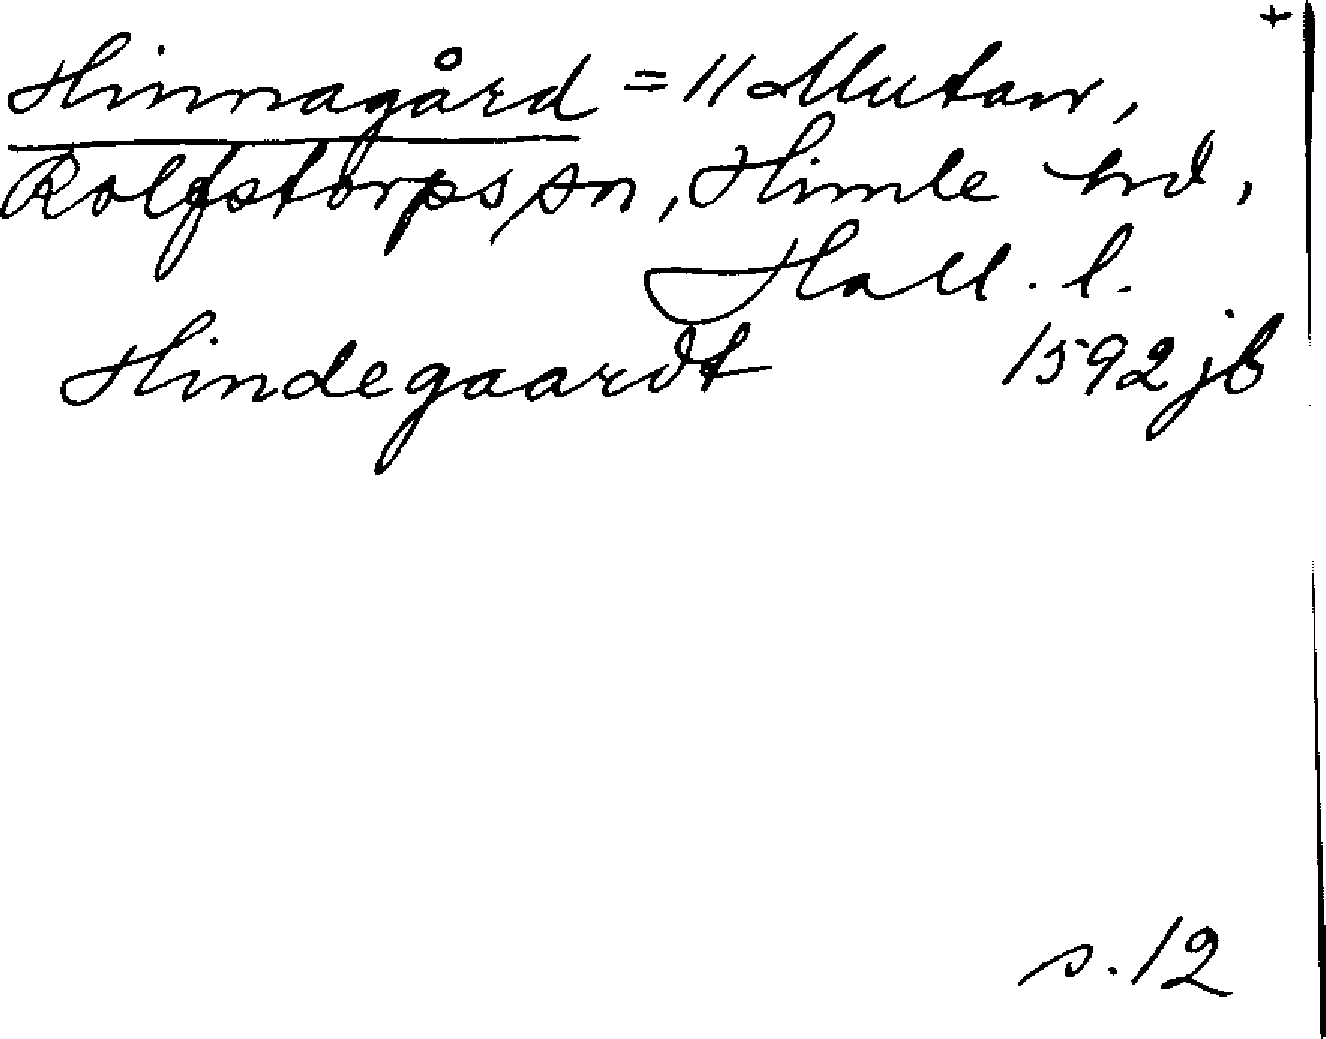 +
Hinnagård = 11 Mutan,
Rolfstorps sn, Himle hd,
Hall. l.
Hindegaardt 1592 jb
s. 12